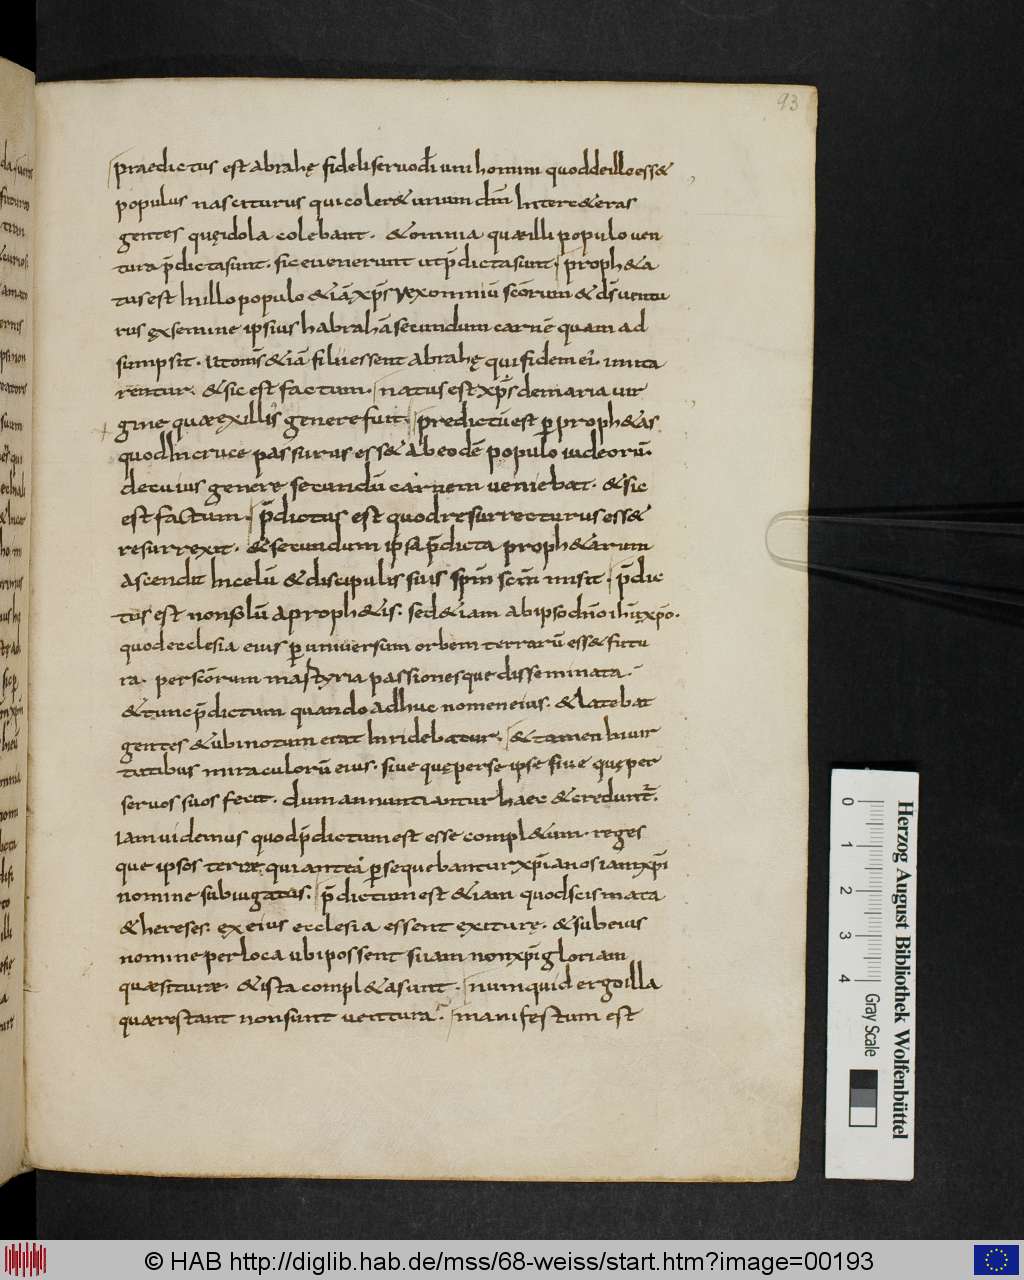 93
praedictus est abrahę fideli seruo dī uni homini quod de illo ess&
populus nasciturus qui coler& unum dm̄ Inter c&eras
gentes quę idola colebant. & omnia quae illi populo uen
tura p̄dicta sunt. sic euenerunt ut p̄dicta sunt. proph&a
tus est In illo populo & iā xp̄s rex omniū sc̄orum & ds̄ uentu
rus ex semine ipsius habrahā secundum carnē quam ad
sumpsit. ut om̄s & iā filii essent abrahę qui fidem ei. imita
rentur. & sic est factum. natus est xp̄s de maria uir
gine quae ex illis genere fuit. predictū est ꝑ proph&as
quod In cruce passurus ess& ab eodē populo iudeorū.
de cuius genere secundū carnem ueniebat. & sic
est factum. p̄dictus est quod resurrecturus ess&
resurrexit. & secundum ipsa p̄dicta proph&arum
ascendit In celū & discipulis suis spm̄ scm̄ misit. p̄dic
tus est non solū a proph&is. sed & iam ab ipso dn̄o ihū xp̄o.
quod ecclesia eius ꝑ uniuersum orbem terrarū ess& futu
ra. per sc̄orum martyria passionesque disseminata.
& tunc p̄dictum quando adhuc nomen eius. & latebat
gentes & ubi notum erat Inridebatur. & tamen In uir
tutibus miraculorū eius. siue quę per se ipse siue quę per
seruos suos fecit. dum annuntiantur haec & creduntr̄.
Iam uidemus quod p̄dictum est esse compl&um. reges
que ipsos terrae qui antea ꝑsequebantur xp̄ianos iam xp̄i
nomine subiugatos. p̄dictum est & iam quod scismata
& hereses. ex eius ecclesia essent exiturę. & sub eius
nomine per loca ubi possent suam non xp̄i gloriam
quaesiturae. & ista compl&a sunt. numquid ergo illa
quae restant non sunt uentura? manifestum est
Herzog August Bibliothek Wolfenbüttel
0 1 2 3 4 Gray Scale
© HAB http://diglib.hab.de/mss/68-weiss/start.htm?image=00193